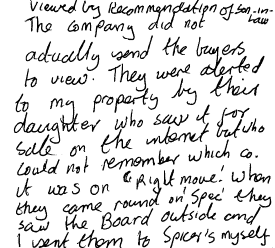 Viewed by Recommendation of son-in-Law
The Company did not
actually send the buyers
to view. They were alerted
to my property by their
daughter who saw it for
sale on the internet but who
could not remember which co.
it was on "Right move. When
they came round on 'Spec' they
saw the Board outside and
I sent them to Spicer's myself